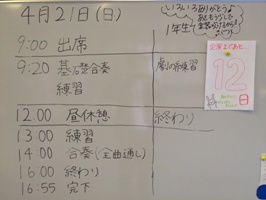 4月21日(日)
いろいろありがとう
1年生
9:00 出席
9:20 基礎合奏
練習
劇の練習
12
日
12:00 昼休憩
終わり
13:00 練習
14:00 合奏(全曲通し)
16:00 終わり
16:55 完下